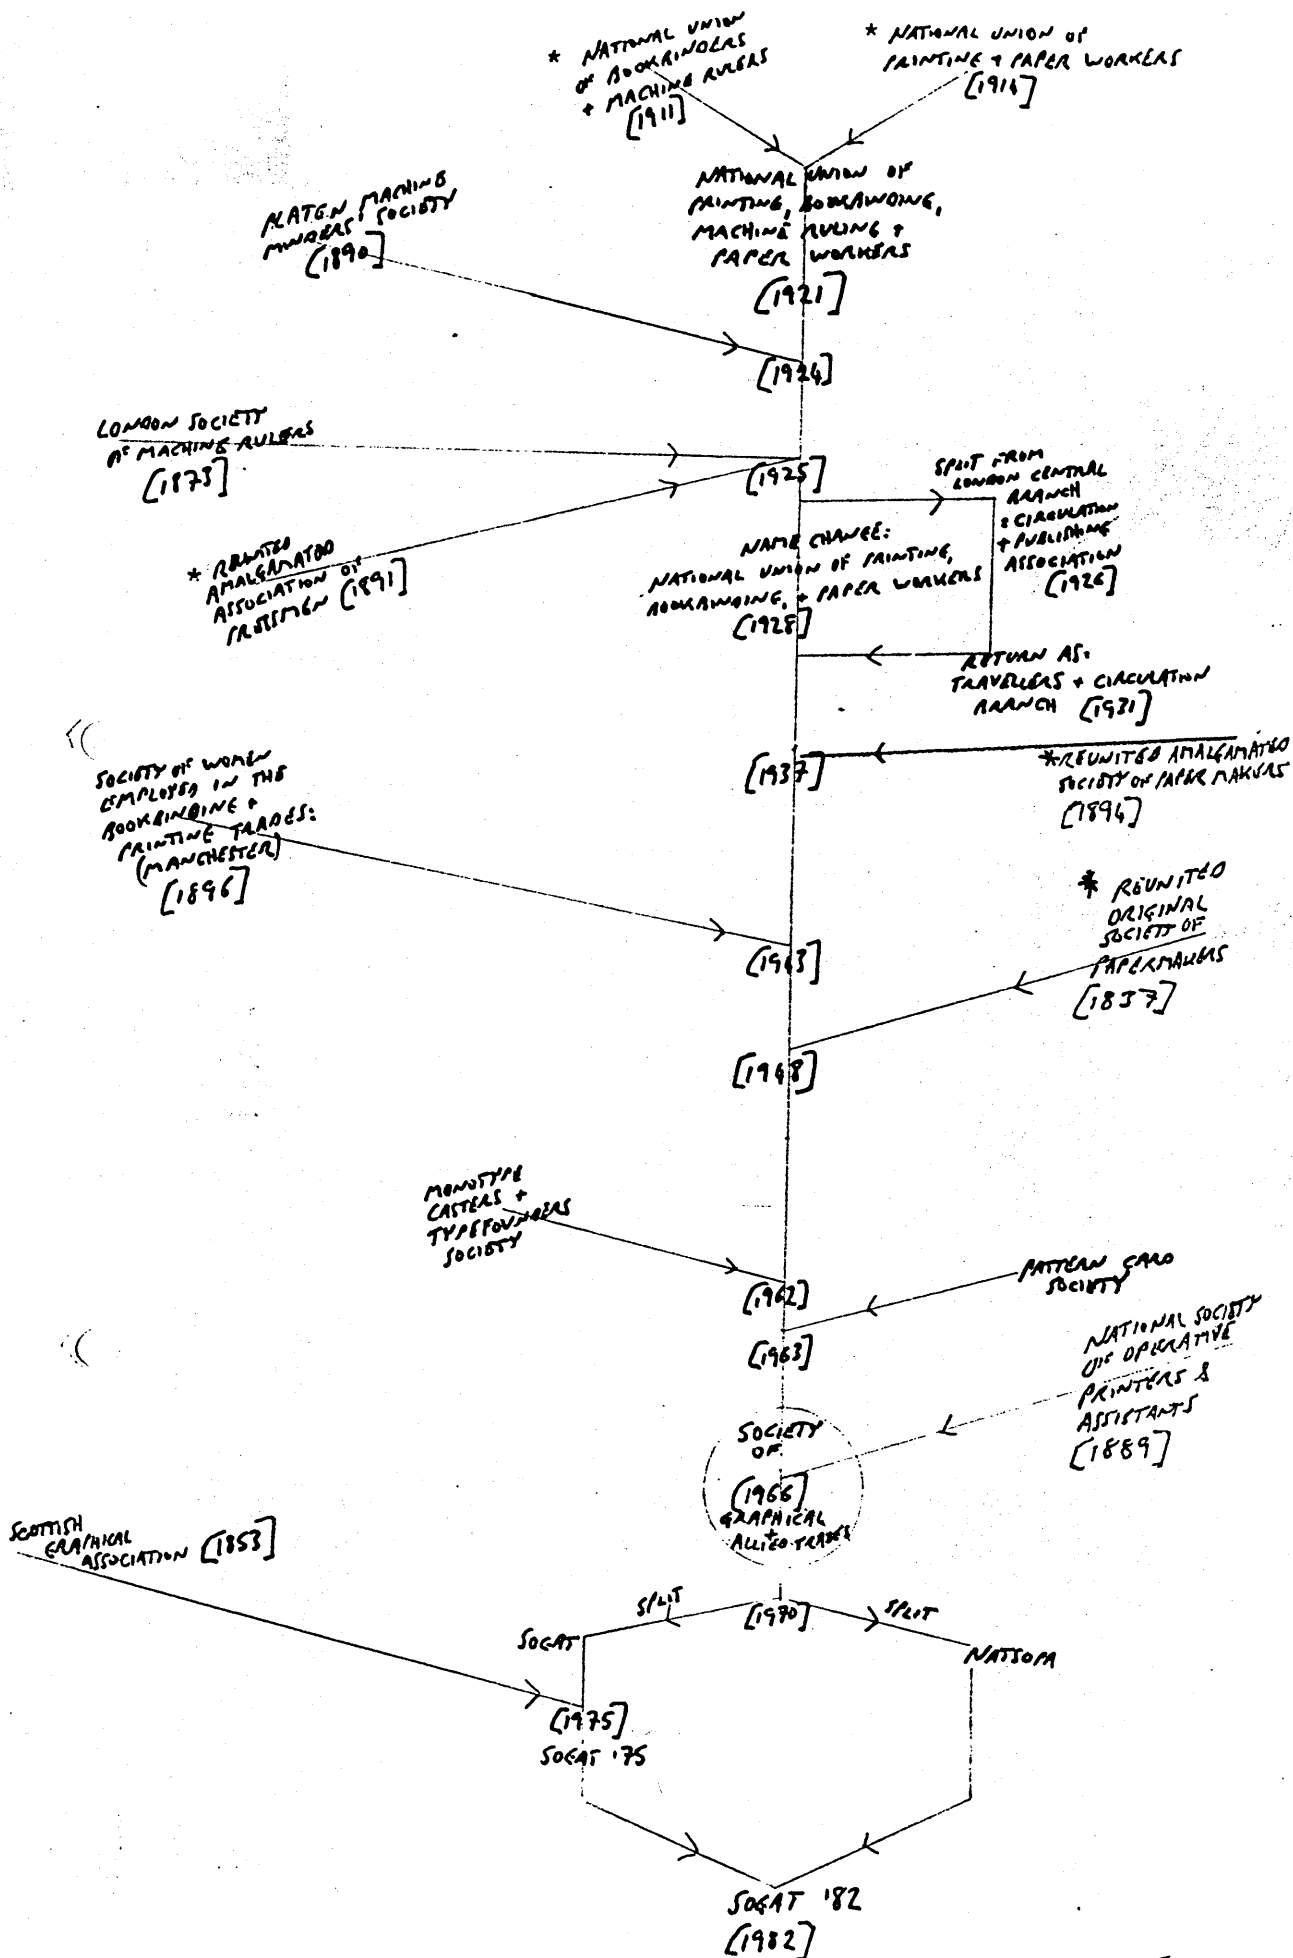 * NATIONAL UNION
OF BOOKBINDERS
+ MACHINE RULERS
[1911]
* NATIONAL UNION OF
PRINTING + PAPER WORKERS
[1914]
NATIONAL UNION OF
PRINTING, BOOKBINDING,
MACHINE RULING +
PAPER WORKERS
[1921]
PLATEN MACHINE
MINDERS' SOCIETY
[1890]
[1924]
LONDON SOCIETY
OF MACHINE RULERS
[1873]
[1925]
* REUNITED
AMALGAMATED
ASSOCIATION OF
PRESSMEN [1891]
SPLIT FROM
LONDON CENTRAL
BRANCH
= CIRCULATION
+ PUBLISHING
ASSOCIATION
[1926]
NAME CHANGE:
NATIONAL UNION OF PRINTING,
BOOKBINDING, + PAPER WORKERS
[1928]
RETURN AS:
TRAVELLERS + CIRCULATION
BRANCH [1931]
[1937]
* REUNITED AMALGAMATED
SOCIETY OF PAPER MAKERS
[1894]
SOCIETY OF WOMEN
EMPLOYED IN THE
BOOKBINDING +
PRINTING TRADES:
(MANCHESTER)
[1896]
[1943]
* REUNITED
ORIGINAL
SOCIETY OF
PAPERMAKERS
[1837]
[1948]
MONOTYPE
CASTERS +
TYPEFOUNDERS
SOCIETY
[1962]
PATTERN CARD
SOCIETY
[1963]
NATIONAL SOCIETY
OF OPERATIVE
PRINTERS &
ASSISTANTS
[1889]
SOCIETY
OF
[1966]
GRAPHICAL
+
ALLIED TRADES
SCOTTISH
GRAPHICAL
ASSOCIATION [1853]
SPLIT
[1970]
SPLIT
SOGAT
NATSOPA
[1975]
SOGAT '75
SOGAT '82
[1982]